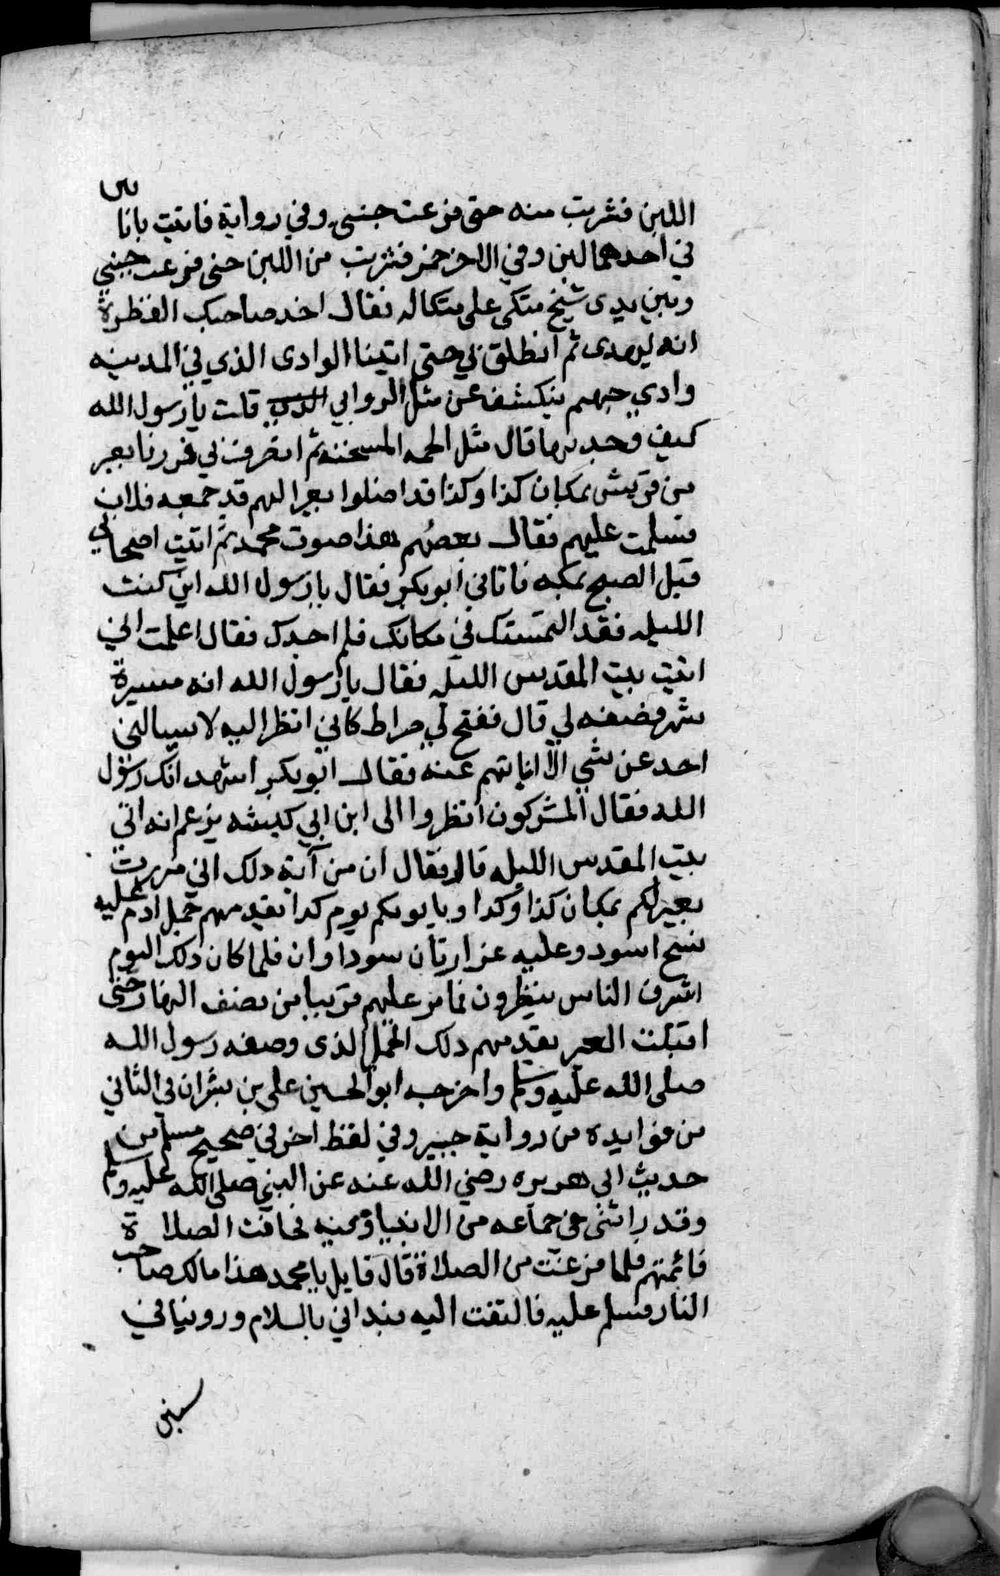 اللبن فشربت منه حتى فرعت جنبي وفي رواية فاتيت بانا ين
في احدهما لبن وفي الاخر خمر فشربت من اللبن حتى فرعت جبيني
وبين يدي شيخ متكي على متكا له فقال اخذ صاحبك الفطرة
انه ليهدى ثم انطلق بي حتى اتينا الوادي الذي في المدينه
وادي جهنم ينكشف عن مثل الروابي قلت يا رسول الله
كيف وجدتها قال مثل الحمه السخنه ثم انصرف بي فمررنا بعير
من قريش بمكان كذا وكذا قد اضلوا بعيرا لهم قد جمعه فلان
فسلمت عليهم فقال بعضهم هذا صوت محمد ثم اتيت اصحابي
قبل الصبح بمكه فاتاني ابو بكر فقال يا رسول الله اين كنت
الليله فقد التمستك في مكانك فلم اجدك فقال اعلمت اني
اتيت بيت المقدس الليله فقال يا رسول الله انه مسيرة
شهر فصفه لي قال ففتح لي صراط كاني انظر اليه لا يسالني
احد عن شي الا انباتهم عنه فقال ابو بكر اشهد انك رسول
الله فقال المشركون انظروا الى ابن ابي كبشه يزعم انه اتي
بيت المقدس الليله قال فقال ان من آية ذلك اني مررت
بعير لكم بمكان كذا وكذا وياتونكم يوم كذا يقدمهم جمل ادم عليه
مسح اسود وعليه غرارتان سوداوان فلما كان ذلك اليوم
اشرف الناس ينظرون فما مر عليهم قريبا من نصف النهار حتى
اقبلت العير يقدمهم ذلك الجمل الذي وصفه رسول الله
صلى الله عليه وسلم واخرجه ابو الحسين علي بن بشران في الثاني
من فوايده من رواية جبير وفي لفظ اخر في صحيح مسلم من
حديث ابي هريره رضي الله عنه عن النبي صلى الله عليه وسلم
وقد رائتني في جماعه من الانبيا وفيه فحانت الصلاة
فائمتهم فلما فرغت من الصلاة قال قايل يا محمد هذا مالك صاحب
النار فسلم عليه فالتفت اليه فبداني بالسلام وروينا في
سنن